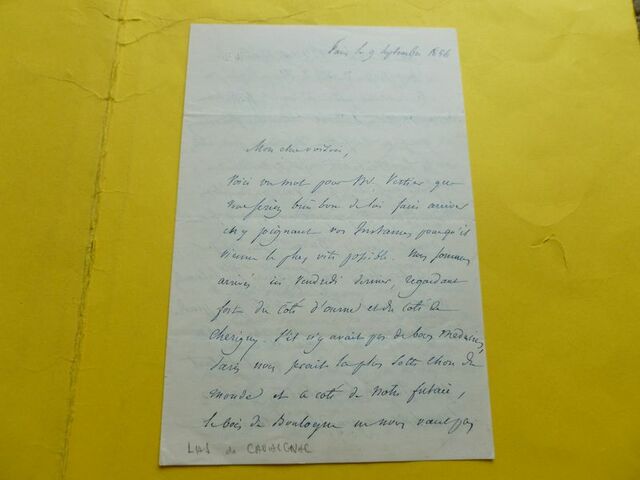 Paris le 9 septembre 1856
Mon cher voisin,
Voici un mot pour Mr. que
vous seriez bien bon de lui faire arriver
en y joignant vos instances pour qu'il
vienne le plus vite possible. Nous sommes
arrivés ici vendredi dernier, regardant
fort du côté d'ourne et du côté de
Cherigny. S'il n'y avait pas de bons médecins,
Paris nous serait la plus sotte chose du
monde et à côté de notre futaie,
le bois de Boulogne ne nous vaut pas
LAS de CAVAIGNAC